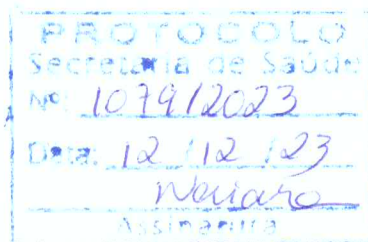 PROTOCOLO
Secretaria de Saúde
Nº 1079/2023
Data: 12/12/23
Naiara
Assinatura